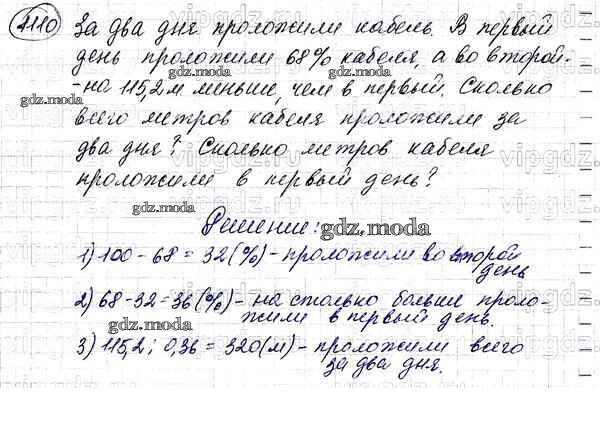 1110 За два дня проложили кабель. В первый
день проложили 68% кабеля, а во второй -
-на 115,2 м меньше, чем в первый. Сколько
всего метров кабеля проложили за
два дня? Сколько метров кабеля
проложили в первый день?
Решение:
1) 100 - 68 = 32 (%) - проложили во второй
день
2) 68 - 32 = 36 (%) - на столько больше проло-
жили в первый день.
3) 115,2 : 0,36 = 320 (м) - проложили всего
за два дня.
gdz.moda
gdz.moda
gdz.moda
gdz.moda
gdz.moda
gdz.moda
gdz.moda
gdz.moda